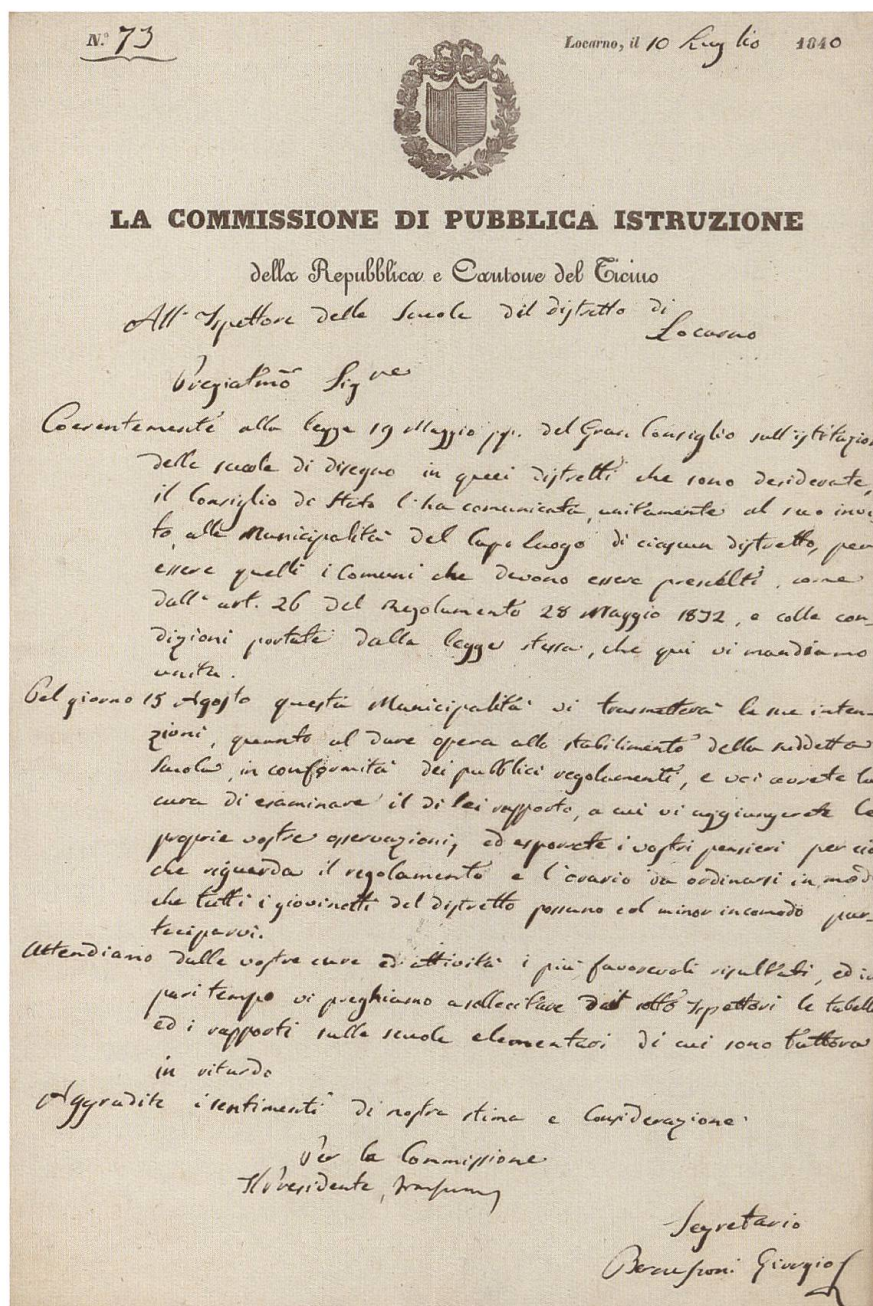 N.º 73
Locarno, il 10 Luglio 1840
LA COMMISSIONE DI PUBBLICA ISTRUZIONE
della Repubblica e Cantone del Ticino
All' Ispettore delle Scuole del distretto di
Locarno
Pregiatmo Sigre
Coerentemente alla legge 19 Maggio pp. del Gran Consiglio sull'istituzio
delle scuole di disegno in quei distretti che sono desiderate,
il Consiglio di Stato l'ha comunicata, unitamente al suo invi
to, alle Municipalità del Capo luogo di ciascun distretto, per
essere quelli i Comuni che devono essere prescelti, come
dall' art. 26 del Regolamento 28 Maggio 1832, e colle con-
dizioni portate dalla legge stessa, che qui vi mandiamo
unita.
Pel giorno 15 Agosto questa Municipalità vi trasmetterà le sue inten-
zioni, quanto al dare opera allo stabilimento della suddetta
Scuola, in conformità dei pubblici regolamenti, e voi avrete la
cura di esaminare il di lei rapporto, a cui vi aggiungerete le
proprie vostre osservazioni, ed esporrete i vostri pensieri per ciò
che riguarda il regolamento e l'orario da ordinarsi in mod
che tutti i giovinetti del distretto possano col minor incomodo par-
teciparvi.
Attendiamo dalle vostre cure ed attività i più favorevoli risultati, ed in
pari tempo vi preghiamo a sollecitare dai sotto Ispettori le tabelle
ed i rapporti sulle scuole elementari di cui sono tuttora
in ritardo
Aggradite i sentimenti di nostra stima e Considerazione.
Per la Commissione
Il Presidente,
Segretario
Giorgio